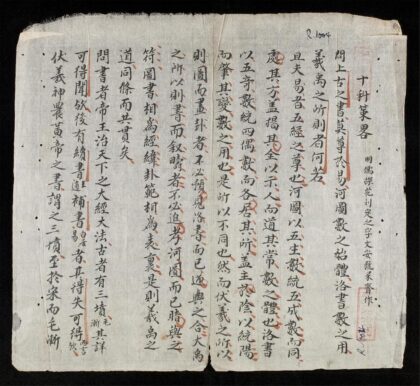 十科策畧
明儒探花刘定之字文安號呆齋作
問上古之書莫尊於易河圖數之始體洛書數之用
羲禹之所則者何若
且夫易者五經之草也河圖以五生數統五成數而同
處其方盖揭其全以示人而道其常數之體也洛書
以五竒數統四偶數而各居其所盖主陰以統陽
而肇其變數之用也是所以不同也然而伏羲之所以
則圖而畫卦者不必預見洛書而已逆與之合大禹
之所以則書而敘疇者不必追考河圖而已暗與之
符圖書相爲經緯卦範相爲表裏是則羲禹之
道同條而共貫矣
問書者帝王治天下之大經大法古者有三墳毛漸其詳
可得聞歟後有續書通補書易者其得失可得
伏羲神農黄帝之書謂之三墳至於宋而毛漸